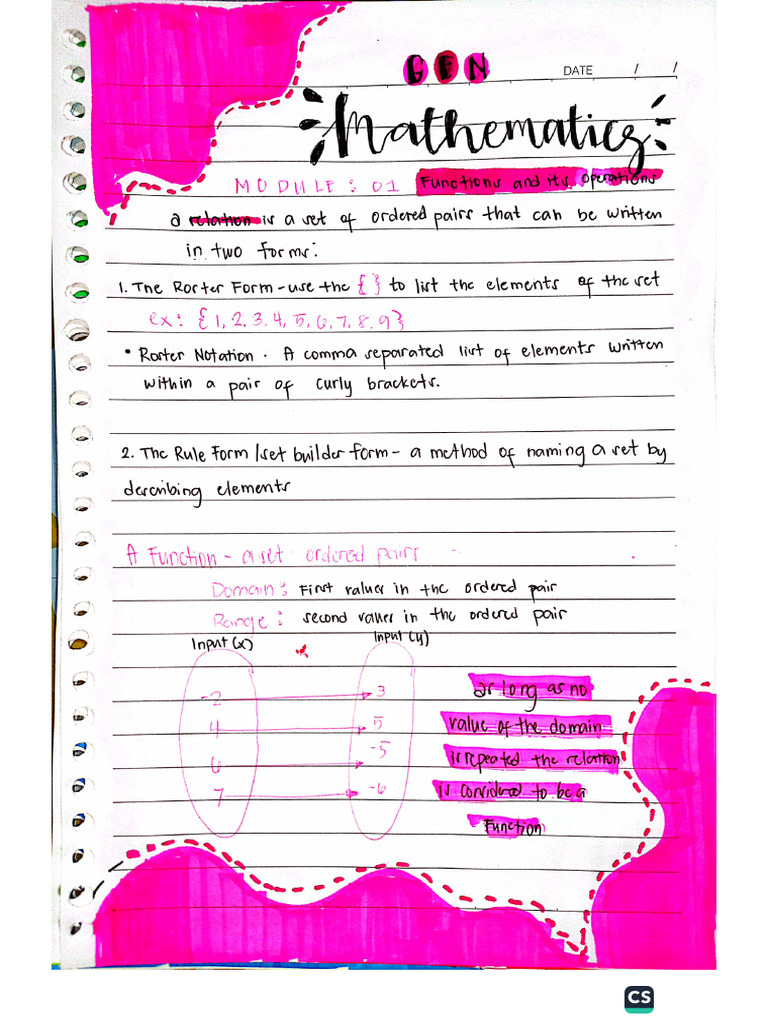 GEN
DATE / /
Mathematics
MODULE: 01 Functions and its operations
a relation is a set of ordered pairs that can be written
in two forms:
1. The Roster Form - use the { } to list the elements of the set
ex: {1, 2, 3, 4, 5, 6, 7, 8, 9}
• Roster Notation. A comma separated list of elements written
within a pair of curly brackets.
2. The Rule Form / set builder form - a method of naming a set by
describing elements
A Function - a set ordered pairs
Domain: First values in the ordered pair
Range: second values in the ordered pair
Input (x) Input (y)
-2 3
4 5
6 -5
7 -6
as long as no
value of the domain
is repeated the relation
is considered to be a
Function
CS